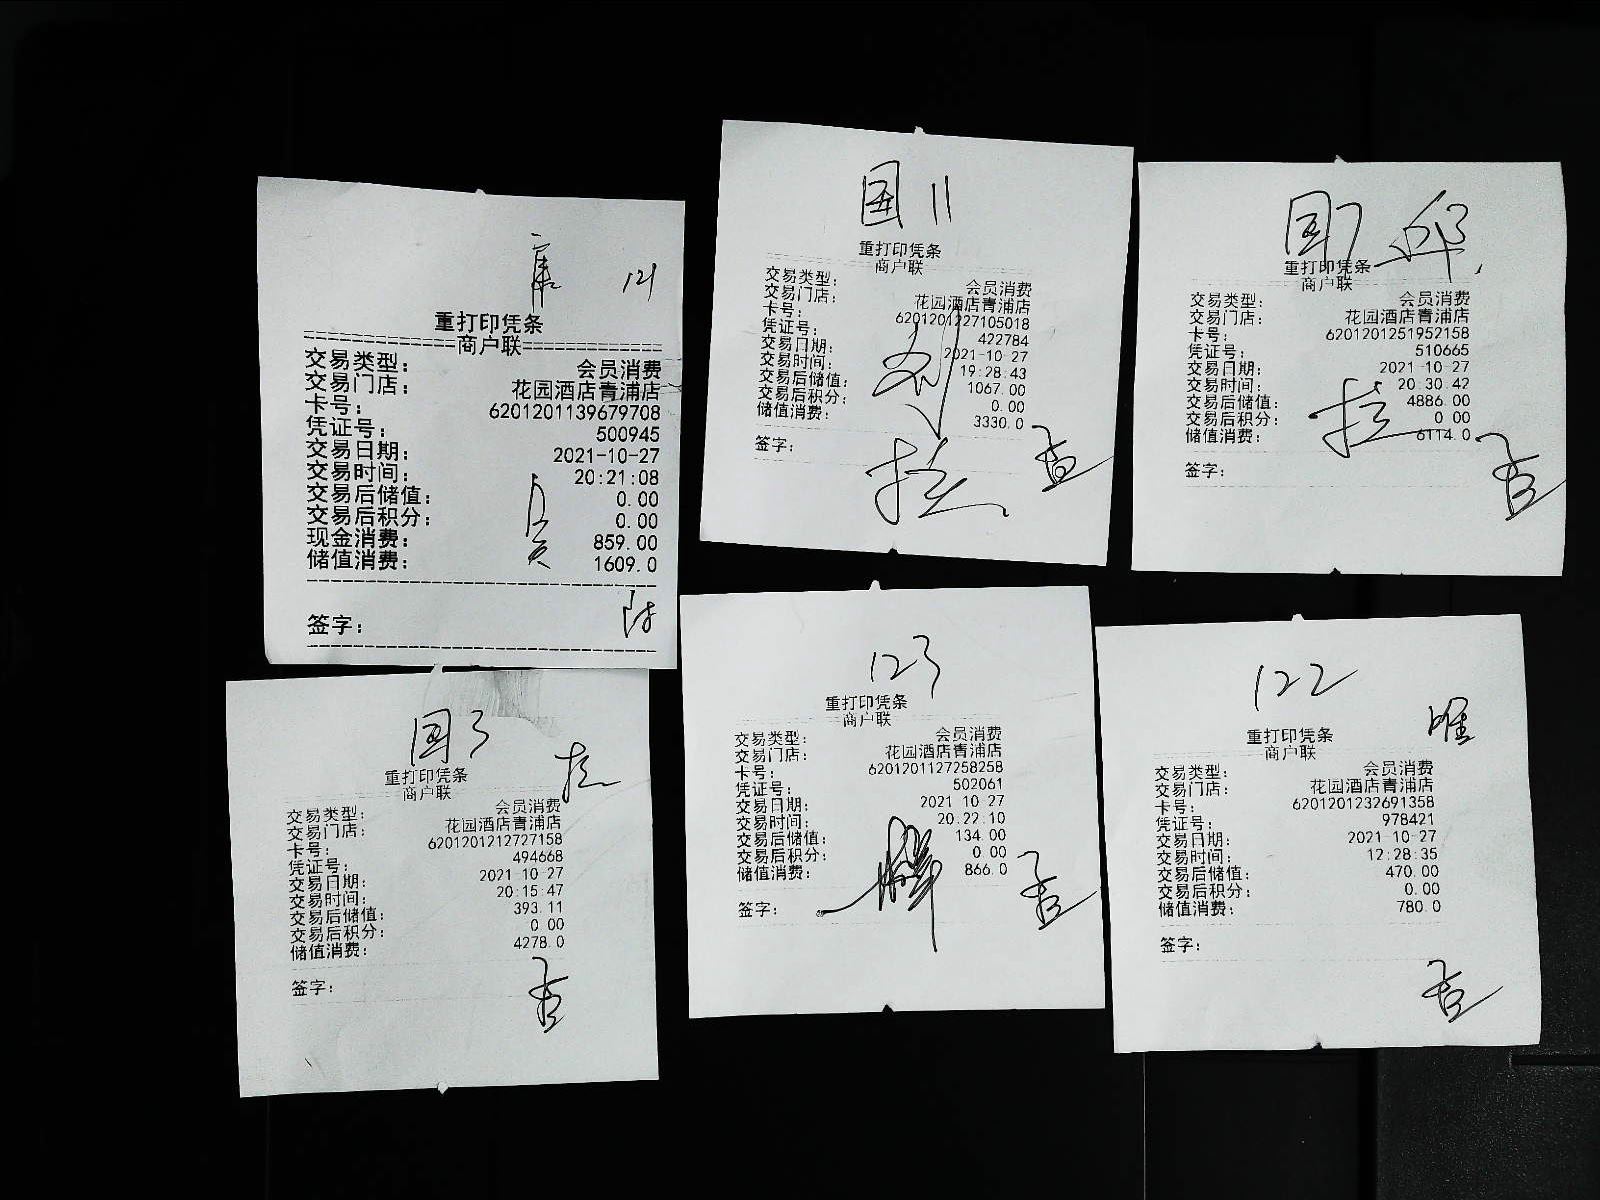 121
重打印凭条
商户联
交易类型: 会员消费
交易门店: 花园酒店青浦店
卡号: 6201201139679708
凭证号: 500945
交易日期: 2021-10-27
交易时间: 20:21:08
交易后储值: 0.00
交易后积分: 0.00
现金消费: 859.00
储值消费: 1609.0
签字:
国11
重打印凭条
商户联
交易类型: 会员消费
交易门店: 花园酒店青浦店
卡号: 6201201227105018
凭证号: 422784
交易日期: 2021-10-27
交易时间: 19:28:43
交易后储值: 1067.00
交易后积分: 0.00
储值消费: 3330.0
签字:
国7
重打印凭条
商户联
交易类型: 会员消费
交易门店: 花园酒店青浦店
卡号: 6201201251952158
凭证号: 510665
交易日期: 2021-10-27
交易时间: 20:30:42
交易后储值: 4886.00
交易后积分: 0.00
储值消费: 6114.0
签字:
国3
重打印凭条
商户联
交易类型: 会员消费
交易门店: 花园酒店青浦店
卡号: 6201201212727158
凭证号: 494668
交易日期: 2021-10-27
交易时间: 20:15:47
交易后储值: 393.11
交易后积分: 0.00
储值消费: 4278.0
签字:
123
重打印凭条
商户联
交易类型: 会员消费
交易门店: 花园酒店青浦店
卡号: 6201201127258258
凭证号: 502061
交易日期: 2021-10-27
交易时间: 20:22:10
交易后储值: 134.00
交易后积分: 0.00
储值消费: 866.0
签字:
122
重打印凭条
商户联
交易类型: 会员消费
交易门店: 花园酒店青浦店
卡号: 6201201232691358
凭证号: 978421
交易日期: 2021-10-27
交易时间: 12:28:35
交易后储值: 470.00
交易后积分: 0.00
储值消费: 780.0
签字: